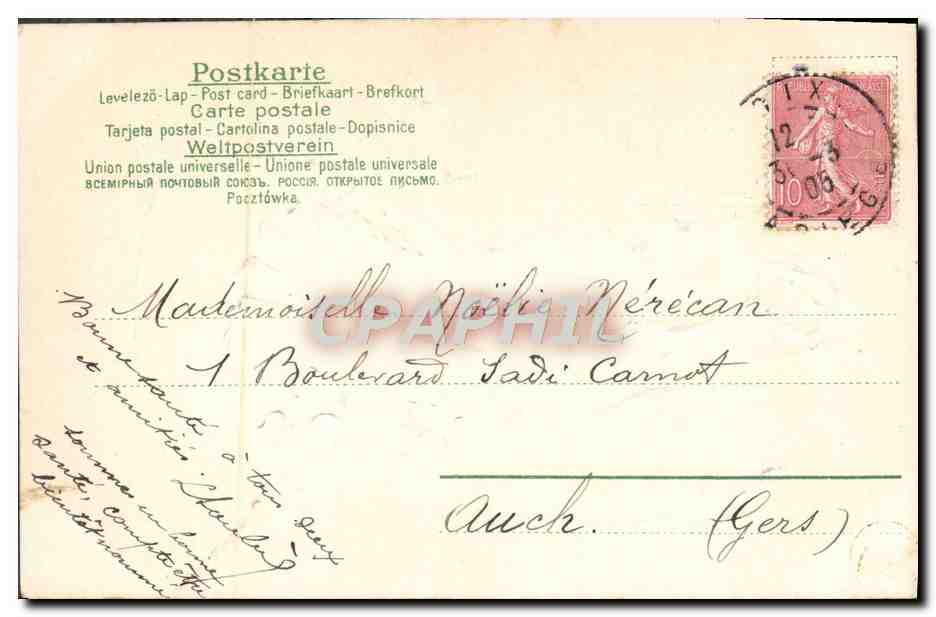 Postkarte
Levelező-Lap - Post card - Briefkaart - Brefkort
Carte postale
Tarjeta postal - Cartolina postale - Dopisnice
Weltpostverein
Union postale universelle - Unione postale universale
ВСЕМІРНЫЙ ПОЧТОВЫЙ СОЮЗЪ. РОССІЯ. ОТКРЫТОЕ ПИСЬМО.
Pocztówka.
10
12
05
Mademoiselle Noëlie Nérécan
1 Boulevard Sadi Carnot
Auch. (Gers)
CPAPHIL
Bonne santé à tous deux
et amitiés.
sommes en bonne
santé, compte être
bientôt nommé